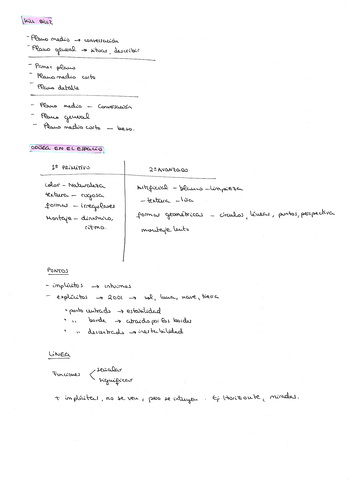 KILL BILL
- Plano medio → conversación
- Plano general → situar, describir
- Primer plano
- Plano medio corto
- Plano detalle
- Plano medio — conversación
- Plano general
- Plano medio corto — beso.
ODISEA EN EL ESPACIO
1º PRIMITIVO
2º AVANZADO
color - Naturaleza
textura - rugosa
formas - irregulares
Montaje - dinámico, ritmo.
Artificial - blanco - limpieza
- textura - lisa
formas geométricas - círculos, líneas, puntos, perspectiva
montaje lento
PUNTOS
- implícitos →
- explícitos → 2001 → sol, luna, nave, tierra
* punto centrado → estabilidad
* " borde → atraído por los bordes
* " descentrado → inestabilidad
LÍNEA
Funciones < señalar
significar
+ implícitas, no se ven, pero se intuyen. Ej Horizonte, miradas.